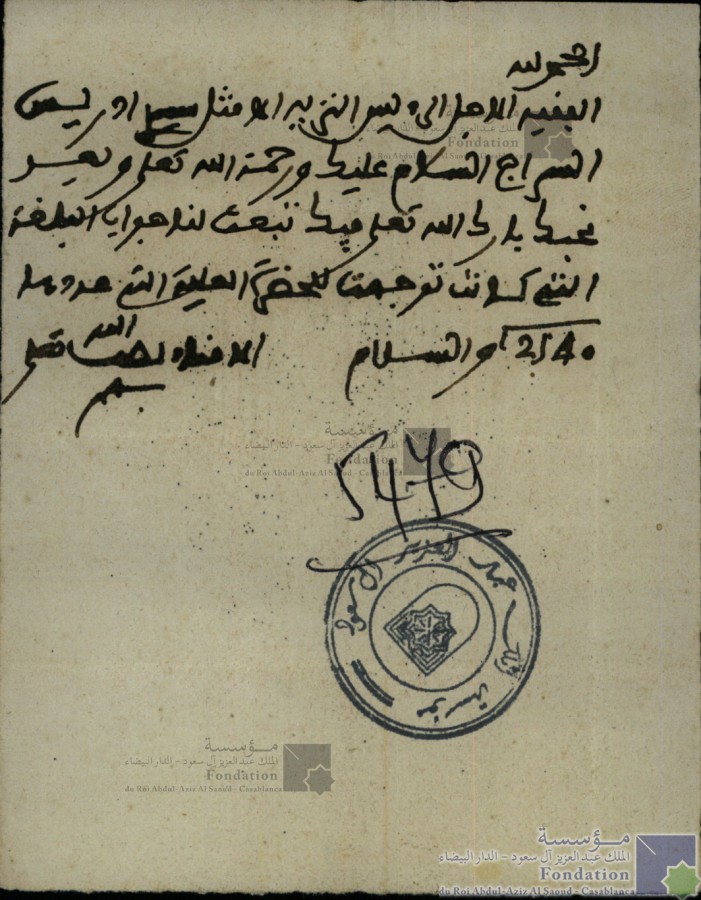 الحمد لله
الفقيه الاجل الرءيس النزيه الامثل سيدي ادريس
السراج السلام عليك ورحمة الله تعلى وبعد
نحبك بارك الله تعلى فيك تبعث لنا جواب البلغة
التي كانت توجهت للحضرة العلية التي عددها
2540 والسلام
الله تعلى
5479
مؤسسة الملك عبد العزيز آل سعود
مؤسسة
الملك عبد العزيز آل سعود - الدار البيضاء
Fondation
du Roi Abdul-Aziz Al Saoud - Casablanca
مؤسسة
الملك عبد العزيز آل سعود - الدار البيضاء
Fondation
du Roi Abdul-Aziz Al Saoud - Casablanca
مؤسسة
الملك عبد العزيز آل سعود - الدار البيضاء
Fondation
du Roi Abdul-Aziz Al Saoud - Casablanca